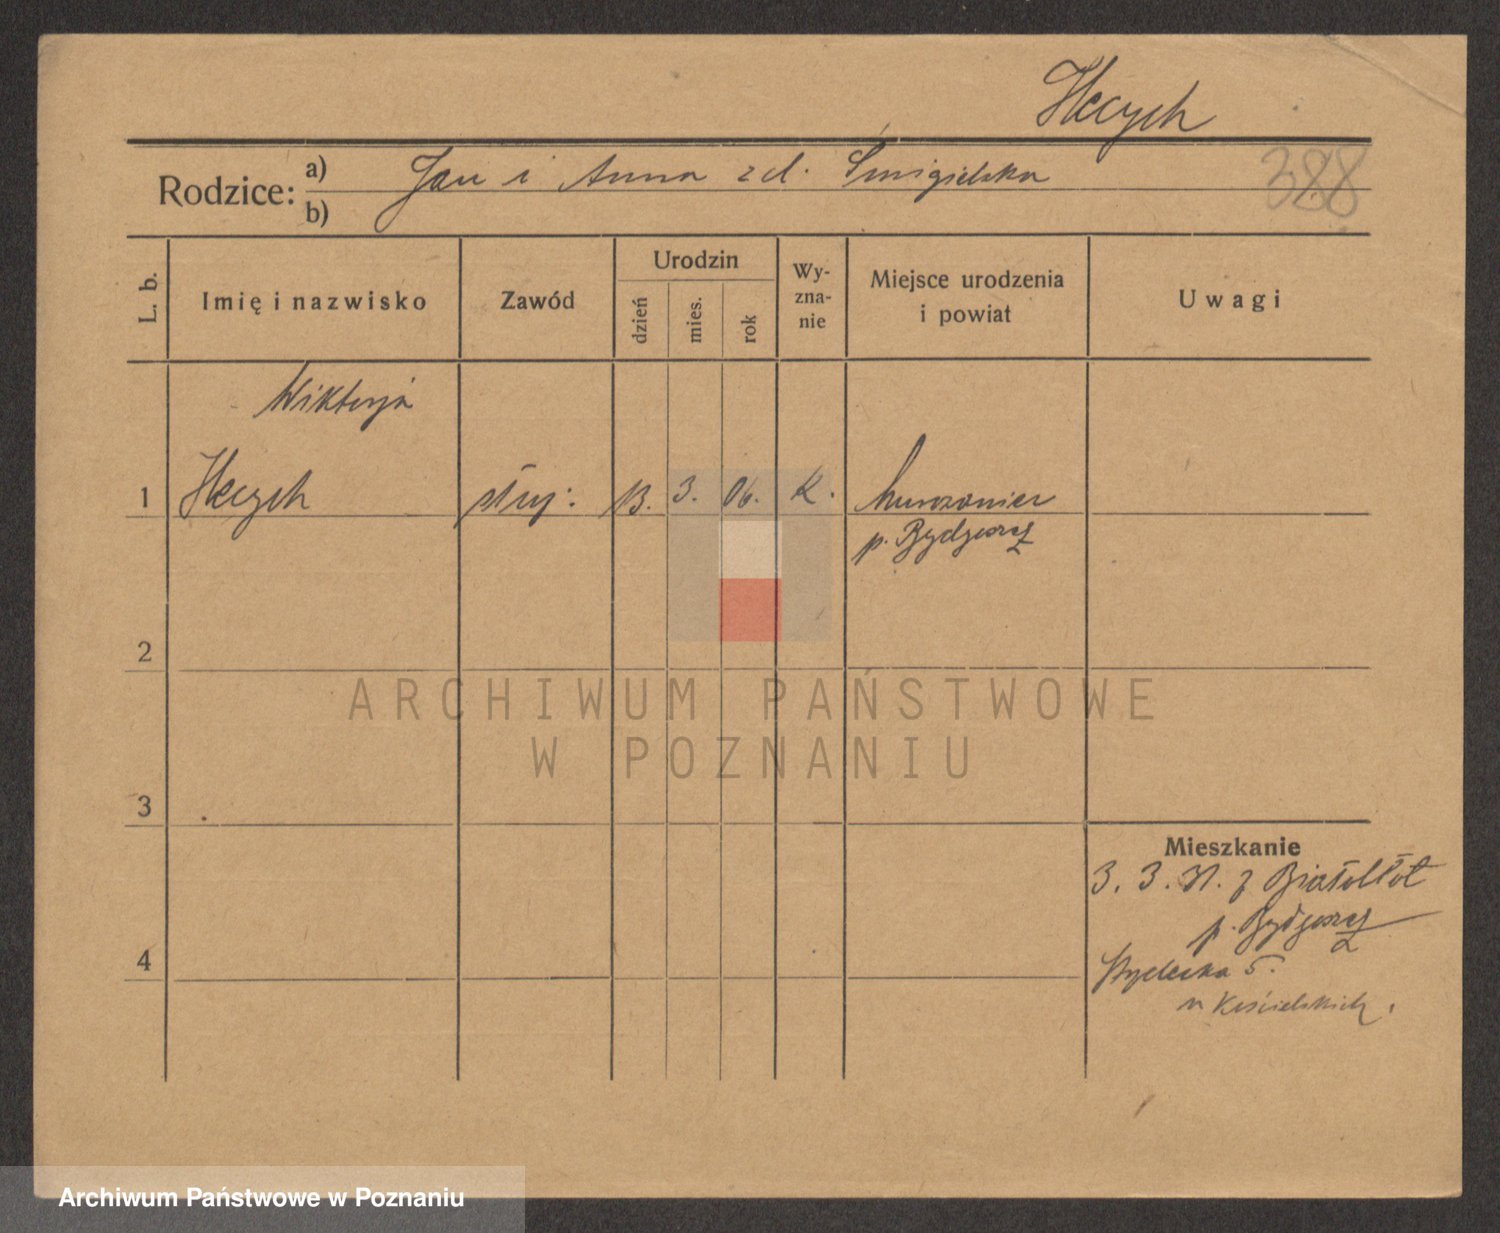 Hecych
Rodzice: a) Jan i Anna zd. Śmigielska
b)
388
L. b.
Imię i nazwisko
Zawód
Urodzin
dzień
mies.
rok
Wy-
zna-
nie
Miejsce urodzenia
i powiat
Uwagi
Wiktorja
1 Hecych służ. 13. 3. 06. K.
p. Bydgoszcz
2
3
4
Mieszkanie
3. 3. 31. z Białobłot
p. Bydgoszcz
5.
u Kościelskich.
ARCHIWUM PAŃSTWOWE
W POZNANIU
Archiwum Państwowe w Poznaniu